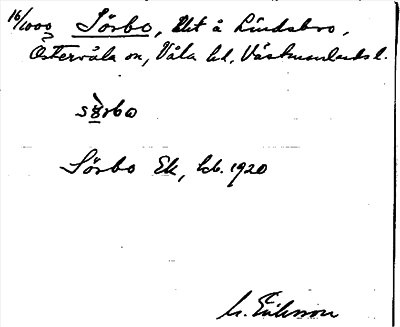 16/1000 Sörbo, Ut å Lindsbro,
Östervåla sn, Våla hd, Västmanlands l.
sörbo
Sörbo Ek, hb. 1920
M. Eriksson